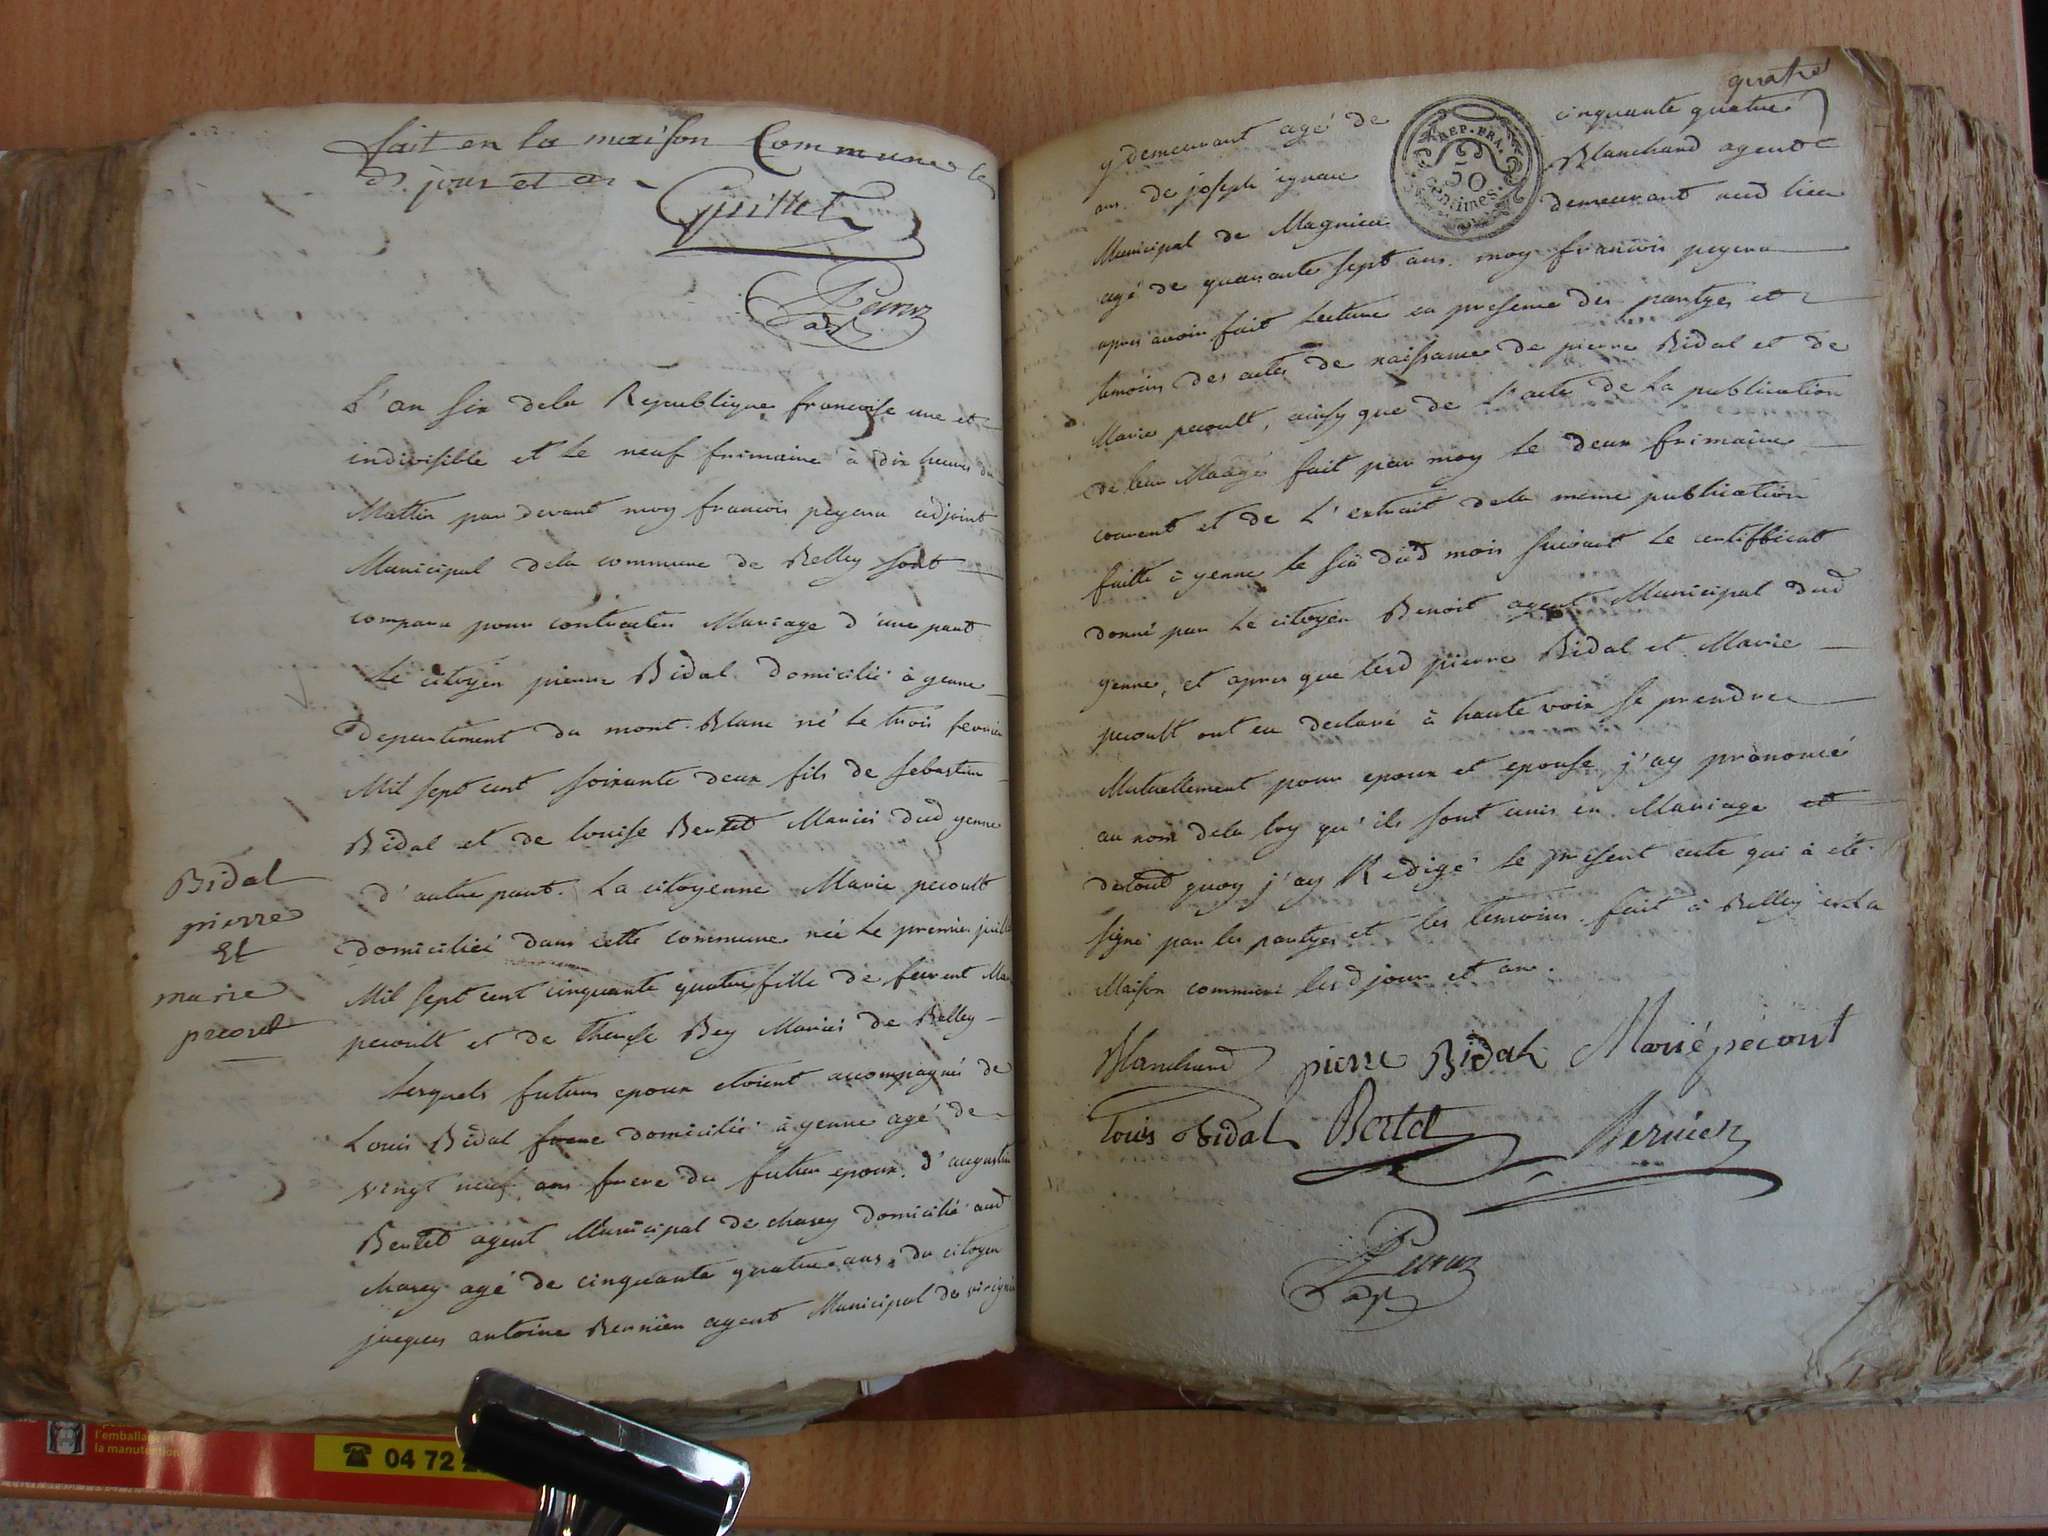 fait en la maison Commune le
d. jour et an
Guillet
L'an six dela Republique francoise une et
indivisible et le neuf frimaire à dix heures du
Mattin par devant moy francois peyeru adjoint
Municipal dela commune de Belley sont
comparu pour contracter Mariage d'une part
Le citoyen pierre Bidal domicilié à yenne
departement du mont-Blanc né le trois fevrier
Mil sept cent soixante deux fils de sebastien
Bidal et de louise Bertet Mariés dud yenne
d'autre part. La citoyenne Marie pecoult
domiciliée dans cette commune née le premier juillet
Mil sept cent cinquante quatre fille de
pecoult et de therese Bey Mariés de Belley
Bidal
pierre
Et
marie
pecoret
lesquels futurs epoux etoient accompagnés de
Louis Bidal frere domicilié à yenne agé de
vingt neuf ans frere du futur epoux. d'augustin
Bertet agent Municipal de charey domicilié aud
charey agé de cinquante quatre ans, du citoyen
jacques antoine Bernier agent Municipal de virignin
quatre
y demeurant agé de cinquante quatre
ans. de joseph ignace Blanchard agent
Municipal de Magnieu demeurant aud lieu
agé de quarante sept ans. moy francois peyeru
apres avoir fait Lecture en presence des partyes et
temoins des actes de naissance de pierre Bidal et de
Marie pecoult, ainsy que de l'acte de la publication
de leur Maage fait par moy le deux frimaire
courant et de L'extrait dela meme publication
faitte à yenne le six dud mois suivant le certifficat
donné par le citoyen Benoit agent Municipal dud
yenne, et apres que lesd pierre Bidal et Marie
pecoult ont eu declaré à haute voix se prendre
Mutuellement pour epoux et epouse j'ay prononcé
au nom dela loy qu'ils sont unis en Mariage et
detout quoy j'ay Redigé le present acte qui à été
signé par les partyes et les temoins. fait à Belley en la
Maison commune lesd jour et an.
Blanchard pierre Bidal Marie pécout
Louis Bidal Bertet Bernier
REP. FRA.
50
Centimes.
l'emballage et
la manutention
04 72 2